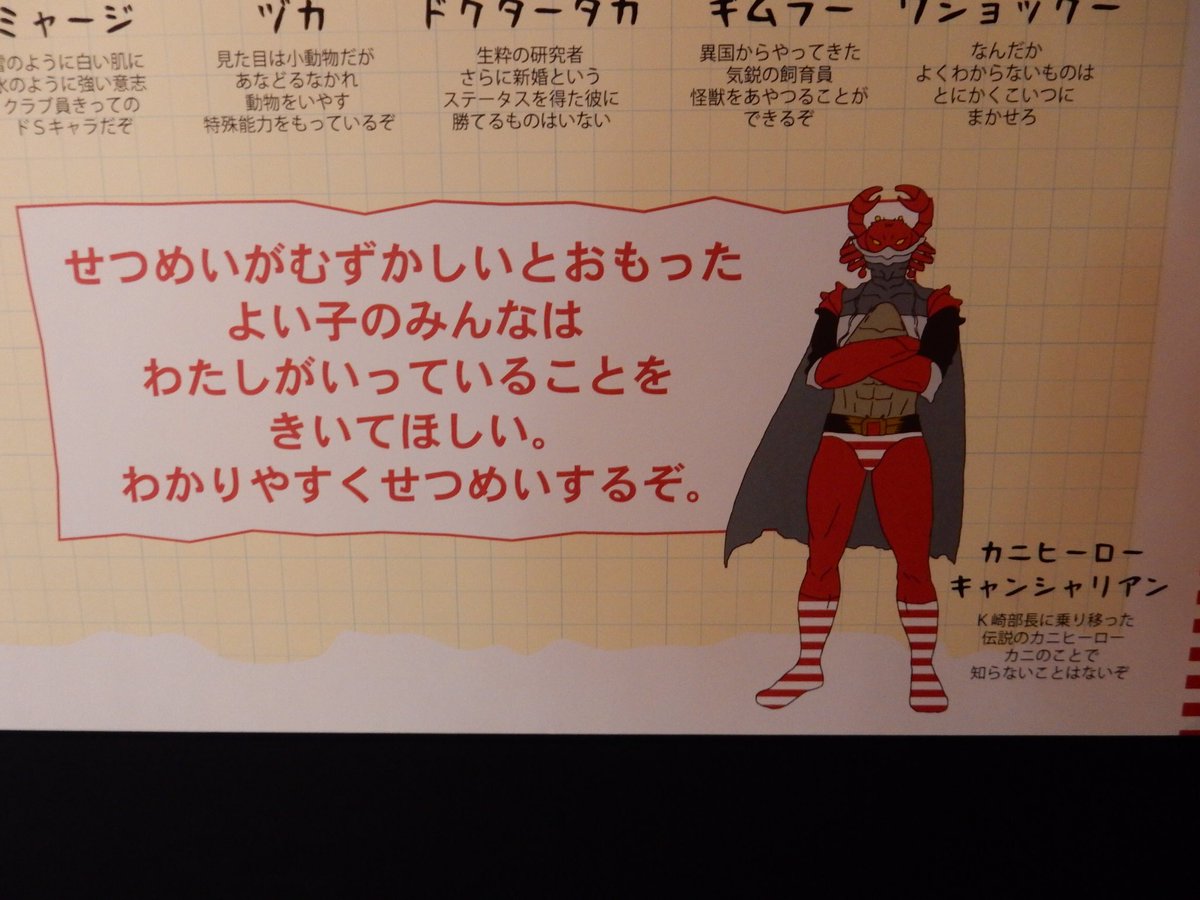 ミャージ
雪のように白い肌に
氷のように強い意志
クラブ員きっての
ドSキャラだぞ
ヅカ
見た目は小動物だが
あなどるなかれ
動物をいやす
特殊能力をもっているぞ
ドクタータカ
生粋の研究者
さらに新婚という
ステータスを得た彼に
勝てるものはいない
キムラー
異国からやってきた
気鋭の飼育員
怪獣をあやつることが
できるぞ
なんだか
よくわからないものは
とにかくこいつに
まかせろ
せつめいがむずかしいとおもった
よい子のみんなは
わたしがいっていることを
きいてほしい。
わかりやすくせつめいするぞ。
カニヒーロー
キャンシャリアン
K崎部長に乗り移った
伝説のカニヒーロー
カニのことで
知らないことはないぞ